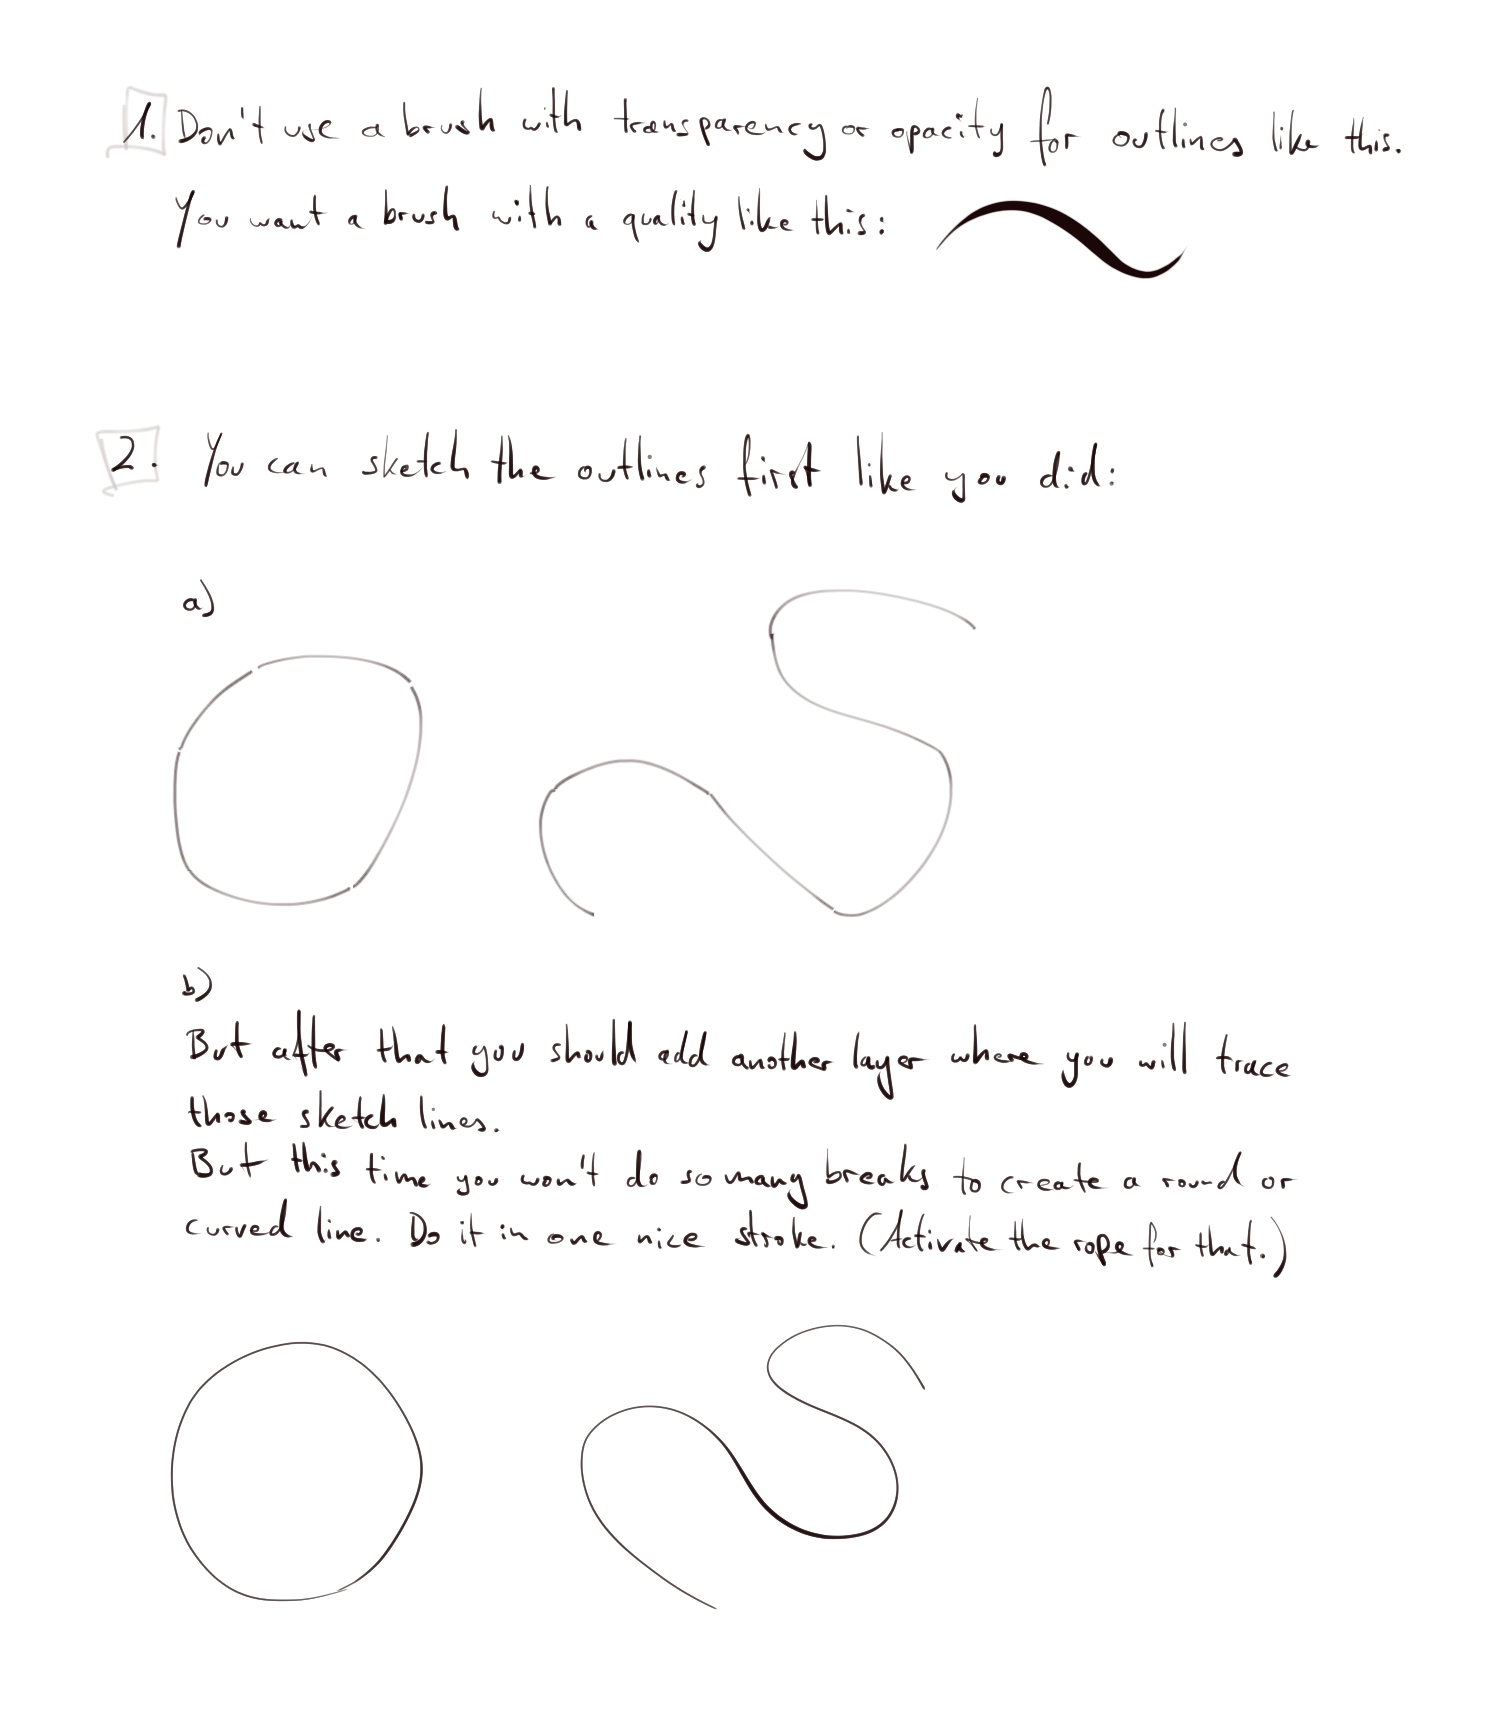 1. Don't use a brush with transparency or opacity for outlines like this.
You want a brush with a quality like this:
2. You can sketch the outlines first like you did:
a)
b)
But after that you should add another layer where you will trace
those sketch lines.
But this time you won't do so many breaks to create a round or
curved line. Do it in one nice stroke. (Activate the rope for that.)